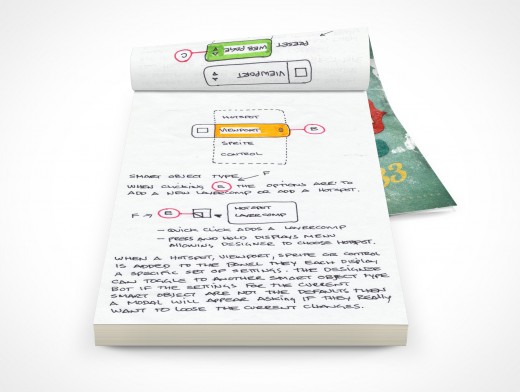 PRESET
C
WEB PAGE
VIEWPORT
HOTSPOT
VIEWPORT
B
SPRITE
CONTROL
SMART OBJECT TYPE F
WHEN CLICKING E THE OPTIONS ARE TO
ADD A NEW LAYERCOMP OR ADD A HOTSPOT.
F E HOTSPOT
LAYERCOMP
– QUICK CLICK ADDS A LAYERCOMP
– PRESS AND HOLD DISPLAYS MENU
ALLOWING DESIGNER TO CHOOSE HOTSPOT.
WHEN A HOTSPOT, VIEWPORT, SPRITE OR CONTROL
IS ADDED TO THE PANEL THEY EACH DISPLAY
A SPECIFIC SET OF SETTINGS. THE DESIGNER
CAN TOGGLE TO ANOTHER SMART OBJECT TYPE
BUT IF THE SETTINGS FOR THE CURRENT
SMART OBJECT ARE NOT THE DEFAULTS THEN
A MODAL WILL APPEAR ASKING IF THEY REALLY
WANT TO LOOSE THE CURRENT CHANGES.
33